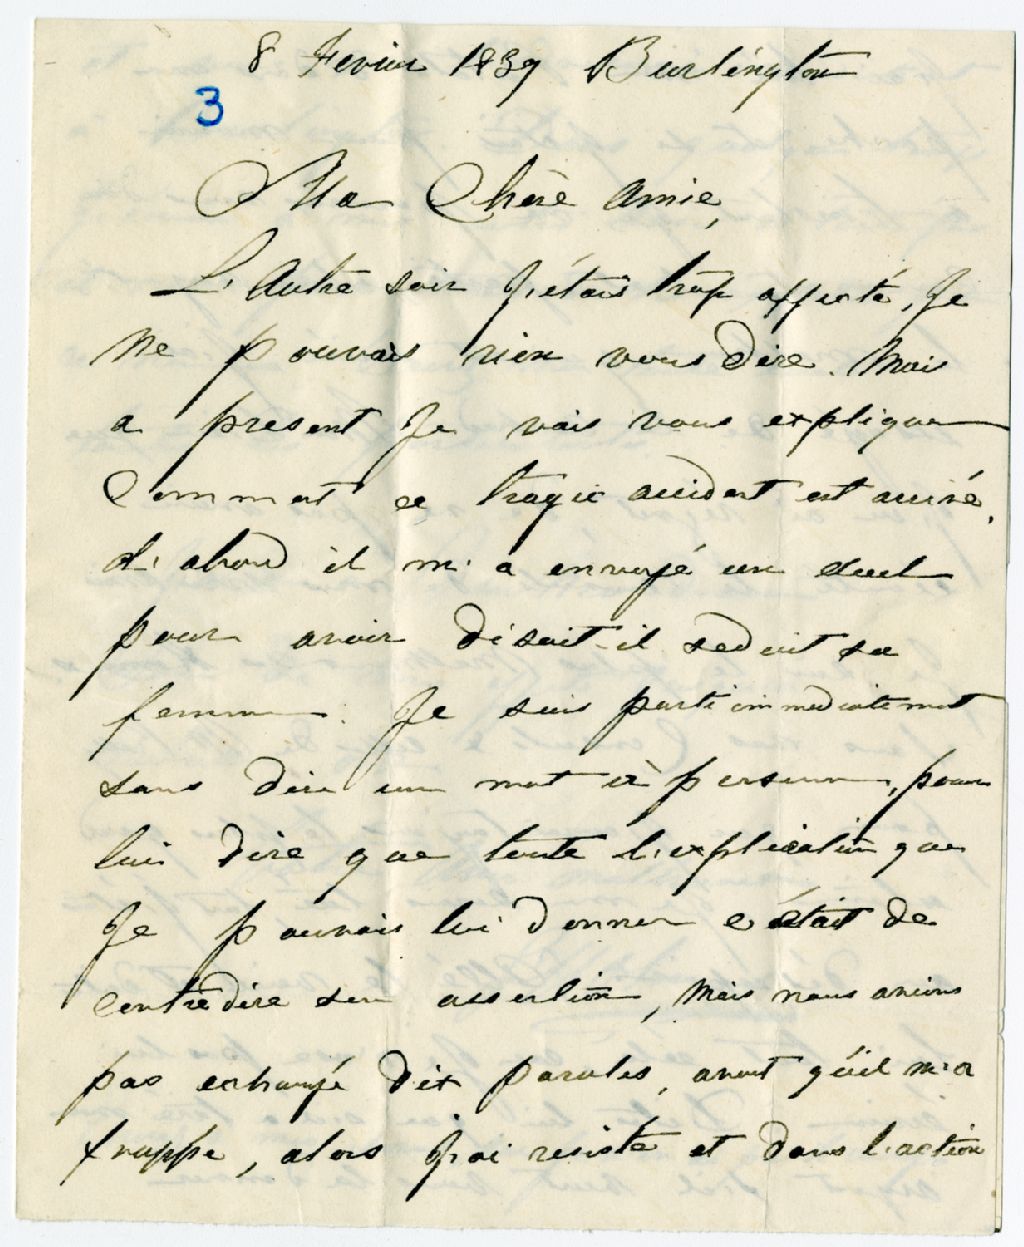 8 Fevrier 1839 Burlington
3
Ma Chère Amie,
L'Autre soir J'étais trop affecté, Je
Ne pouvais rien vous Dire. Mais
a present Je vais vous expliquer
Comment ce tragic accident est arrivé.
d'abord il m'a envoyé un duel
pour avoir disait-il seduit sa
femme. Je suis parti immediatement
sans dire un mot à personne, pour
lui Dire que toute l'explication que
Je pouvais lui Donner c'était de
contredire son assertion, Mais nous avions
pas echangé Dix paroles, avant qu'il m'a
frappe, alors J'ai resisté et dans l'action